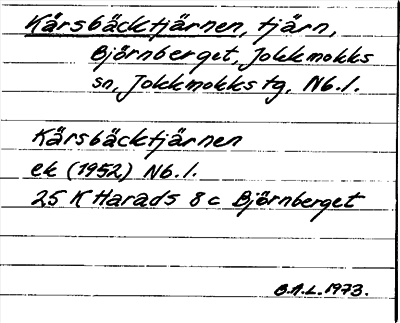 Kårsbäcktjärnen, tjärn,
Björnberget, Jokkmokks
sn, Jokkmokks tg, Nb.l.
Kårsbäcktjärnen
ek (1952) Nb.l.
25 K Harads 8 c Björnberget
B.A.L. 1973.